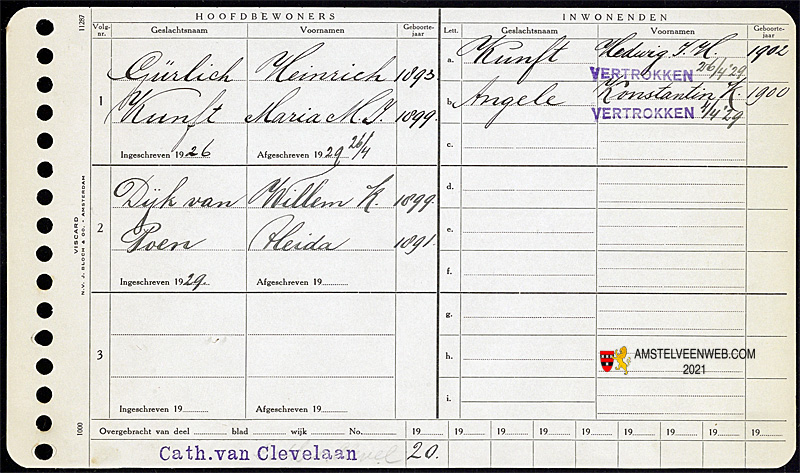 HOOFDBEWONERS
INWONENDEN
Volg-nr.
Geslachtsnaam
Voornamen
Geboorte-jaar
Lett.
Geslachtsnaam
Voornamen
Geboorte-jaar
1
Gürlich Heinrich 1893
Kunft Maria M.J. 1899
Ingeschreven 1926 Afgeschreven 1929 26/4
2
Dijk van Willem K. 1899
Poen Aleida 1891
Ingeschreven 1929. Afgeschreven 19
3
Ingeschreven 19 Afgeschreven 19
a. Kunft Hedwig J.H. 1902
VERTROKKEN 26/4 '29
b. Angele Konstantin K. 1900
VERTROKKEN 1/4 '29
c.
d.
e.
f.
g.
h.
i.
AMSTELVEENWEB.COM
2021
Overgebracht van deel blad wijk No. 19 19 19 19 19 19 19 19 19
Cath.van Clevelaan 20.
11287
VISCARD
N.V. J. BLOCH & CO. - AMSTERDAM
1000